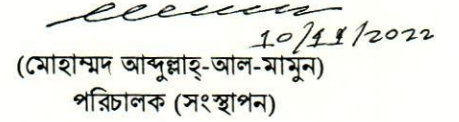 10/11/2022
(মোহাম্মদ আব্দুল্লাহ্-আল-মামুন)
পরিচালক (সংস্থাপন)